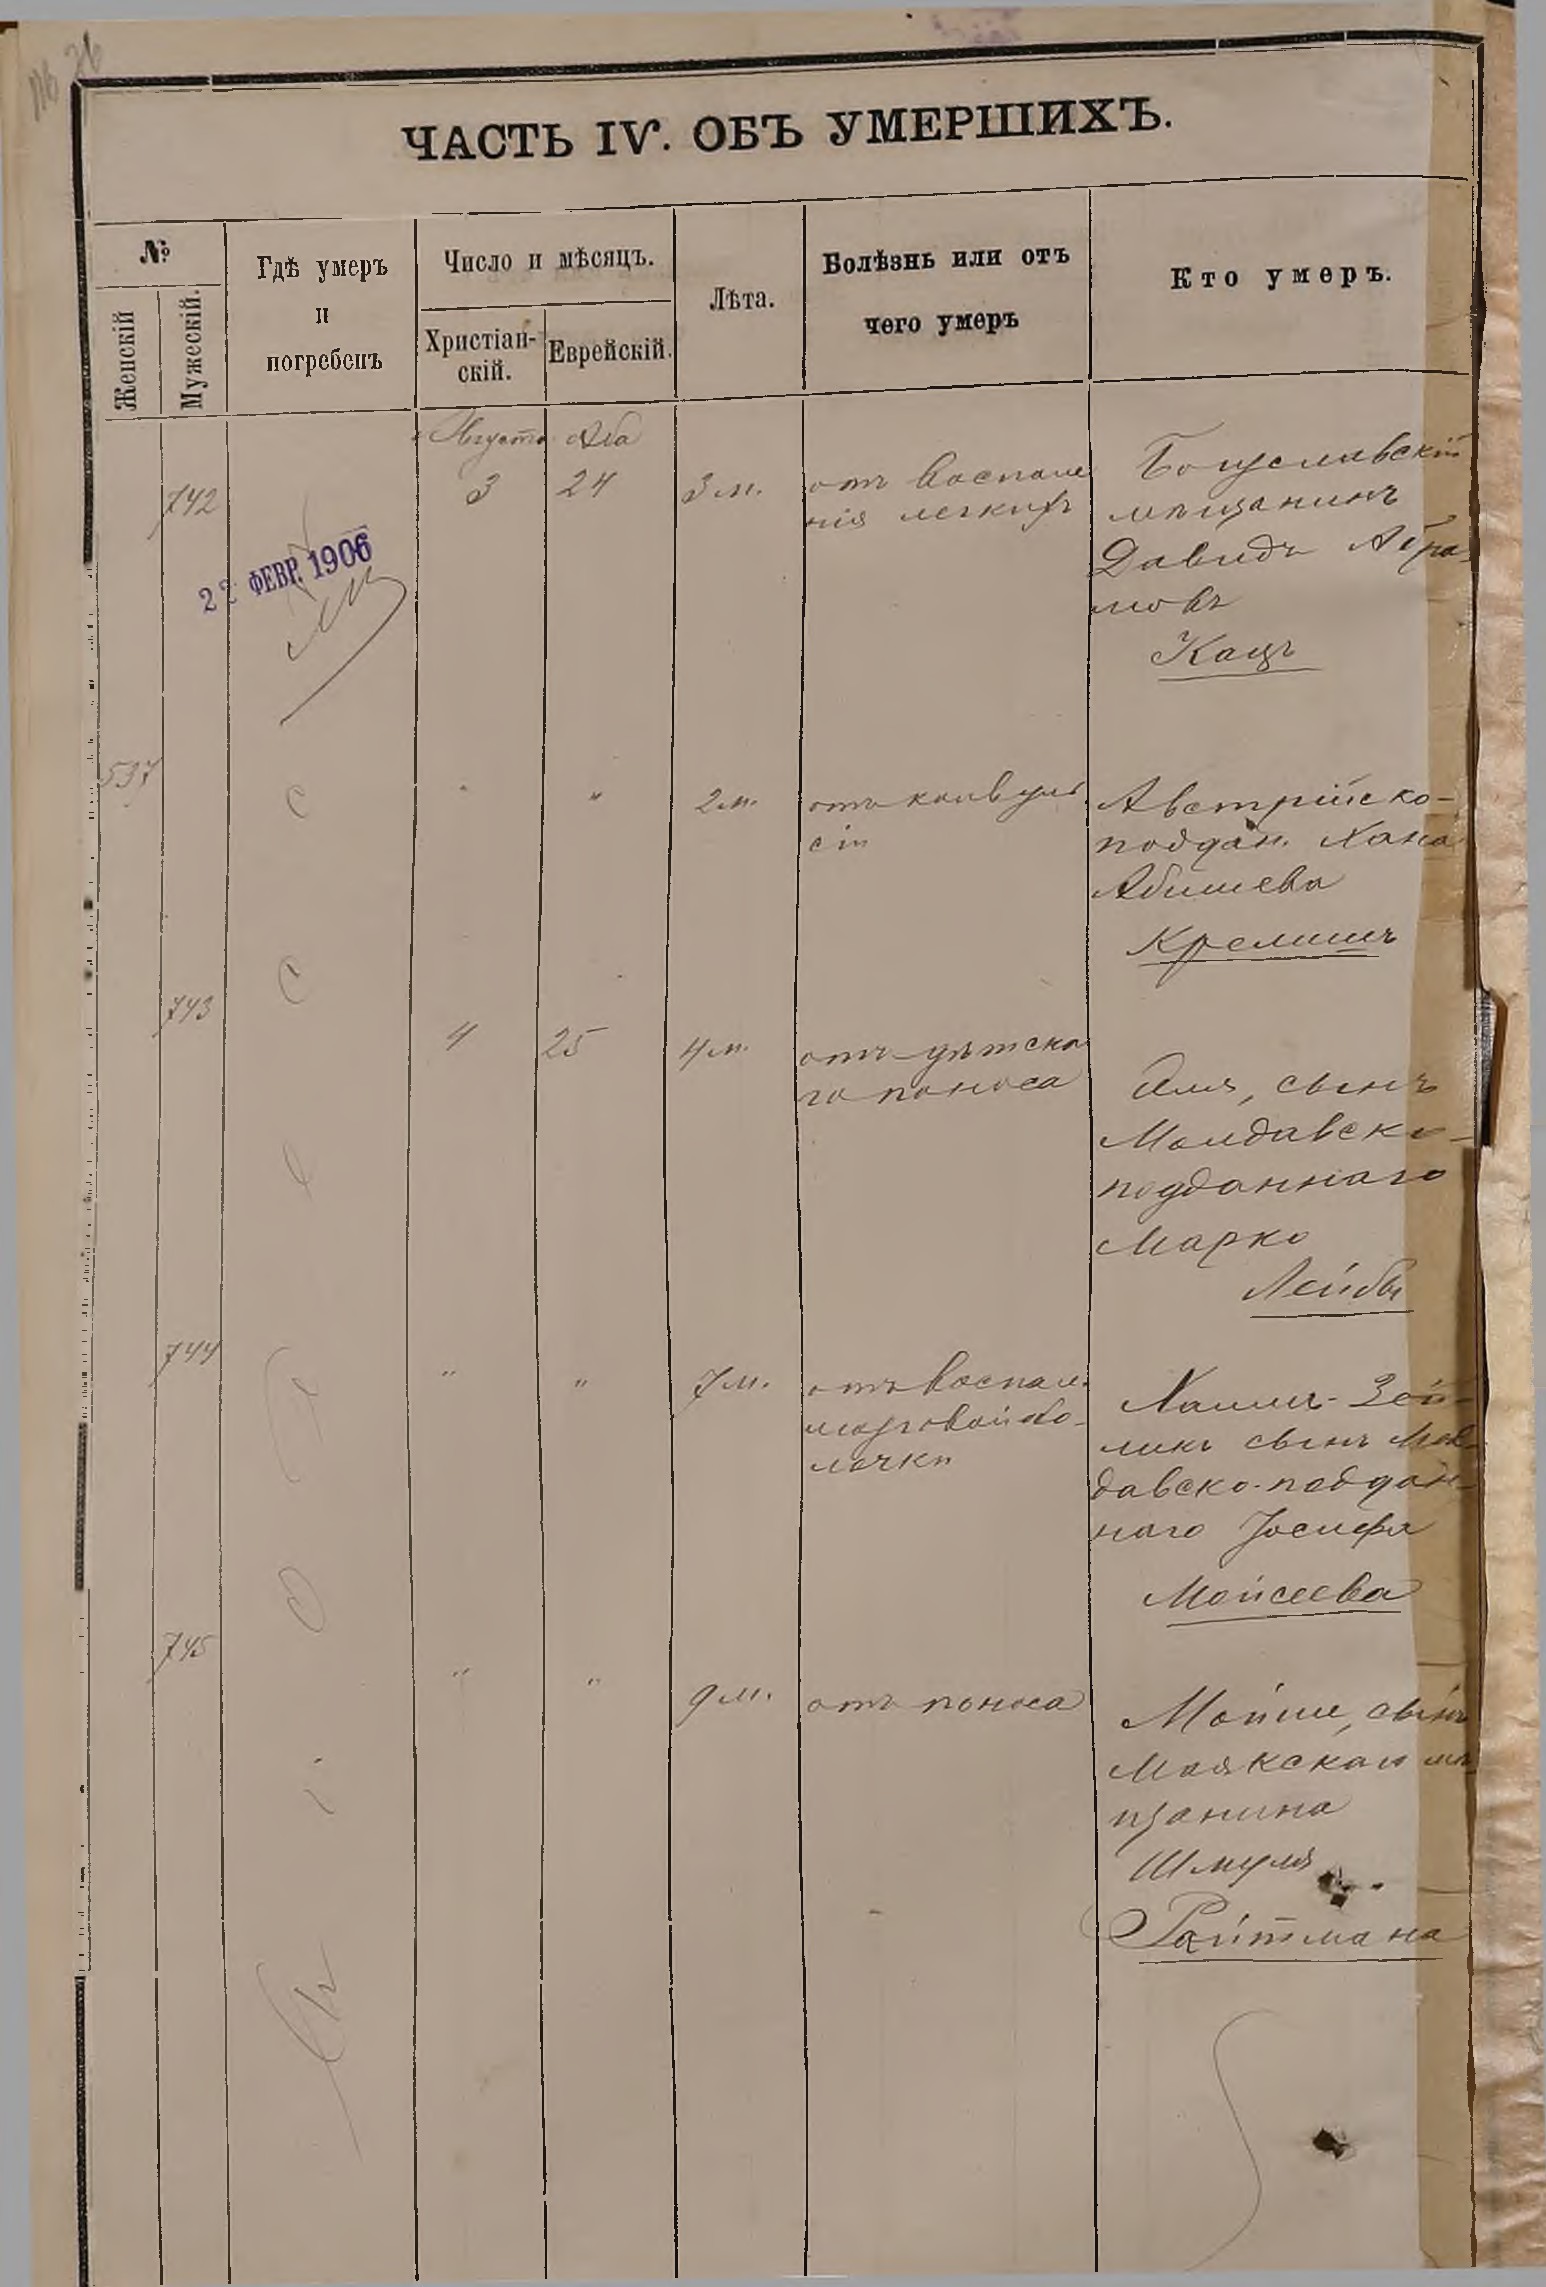 ЧАСТЬ IV. ОБЪ УМЕРШИХЪ.
№
Женскій
Мужескій.
Гдѣ умеръ
и
погребенъ
Число и мѣсяцъ.
Христіан-
скій.
Еврейскій.
Лѣта.
Болѣзнь или отъ
чего умеръ
Кто умеръ.
Августа Аба
742 3 24 3 м. отъ воспале
нія легкихъ
Богуславскій
мѣщанинъ
Давидъ Абра-
мовъ
Кацъ
22 ФЕВР. 1906
537 " " 2 м. отъ конвуль
сіи
Австрійско-
поддан. Хана
Абишева
Кремишъ
743 4 25 4 м. отъ дѣтска
го поноса
сынъ
Молдавско-
подданнаго
Марко
Лейбы
744 " " 7 м. отъ воспал.
мозговой обо-
лочки
Хаимъ-Зей-
ликъ сынъ Мол-
давско-поддан-
наго Іосифа
Мойсеева
745 " " 9 м. отъ поноса
Мойше, сынъ
Маякскаго мѣ
щанина
Шмуля
Ройтмана
О
д
е
с
с